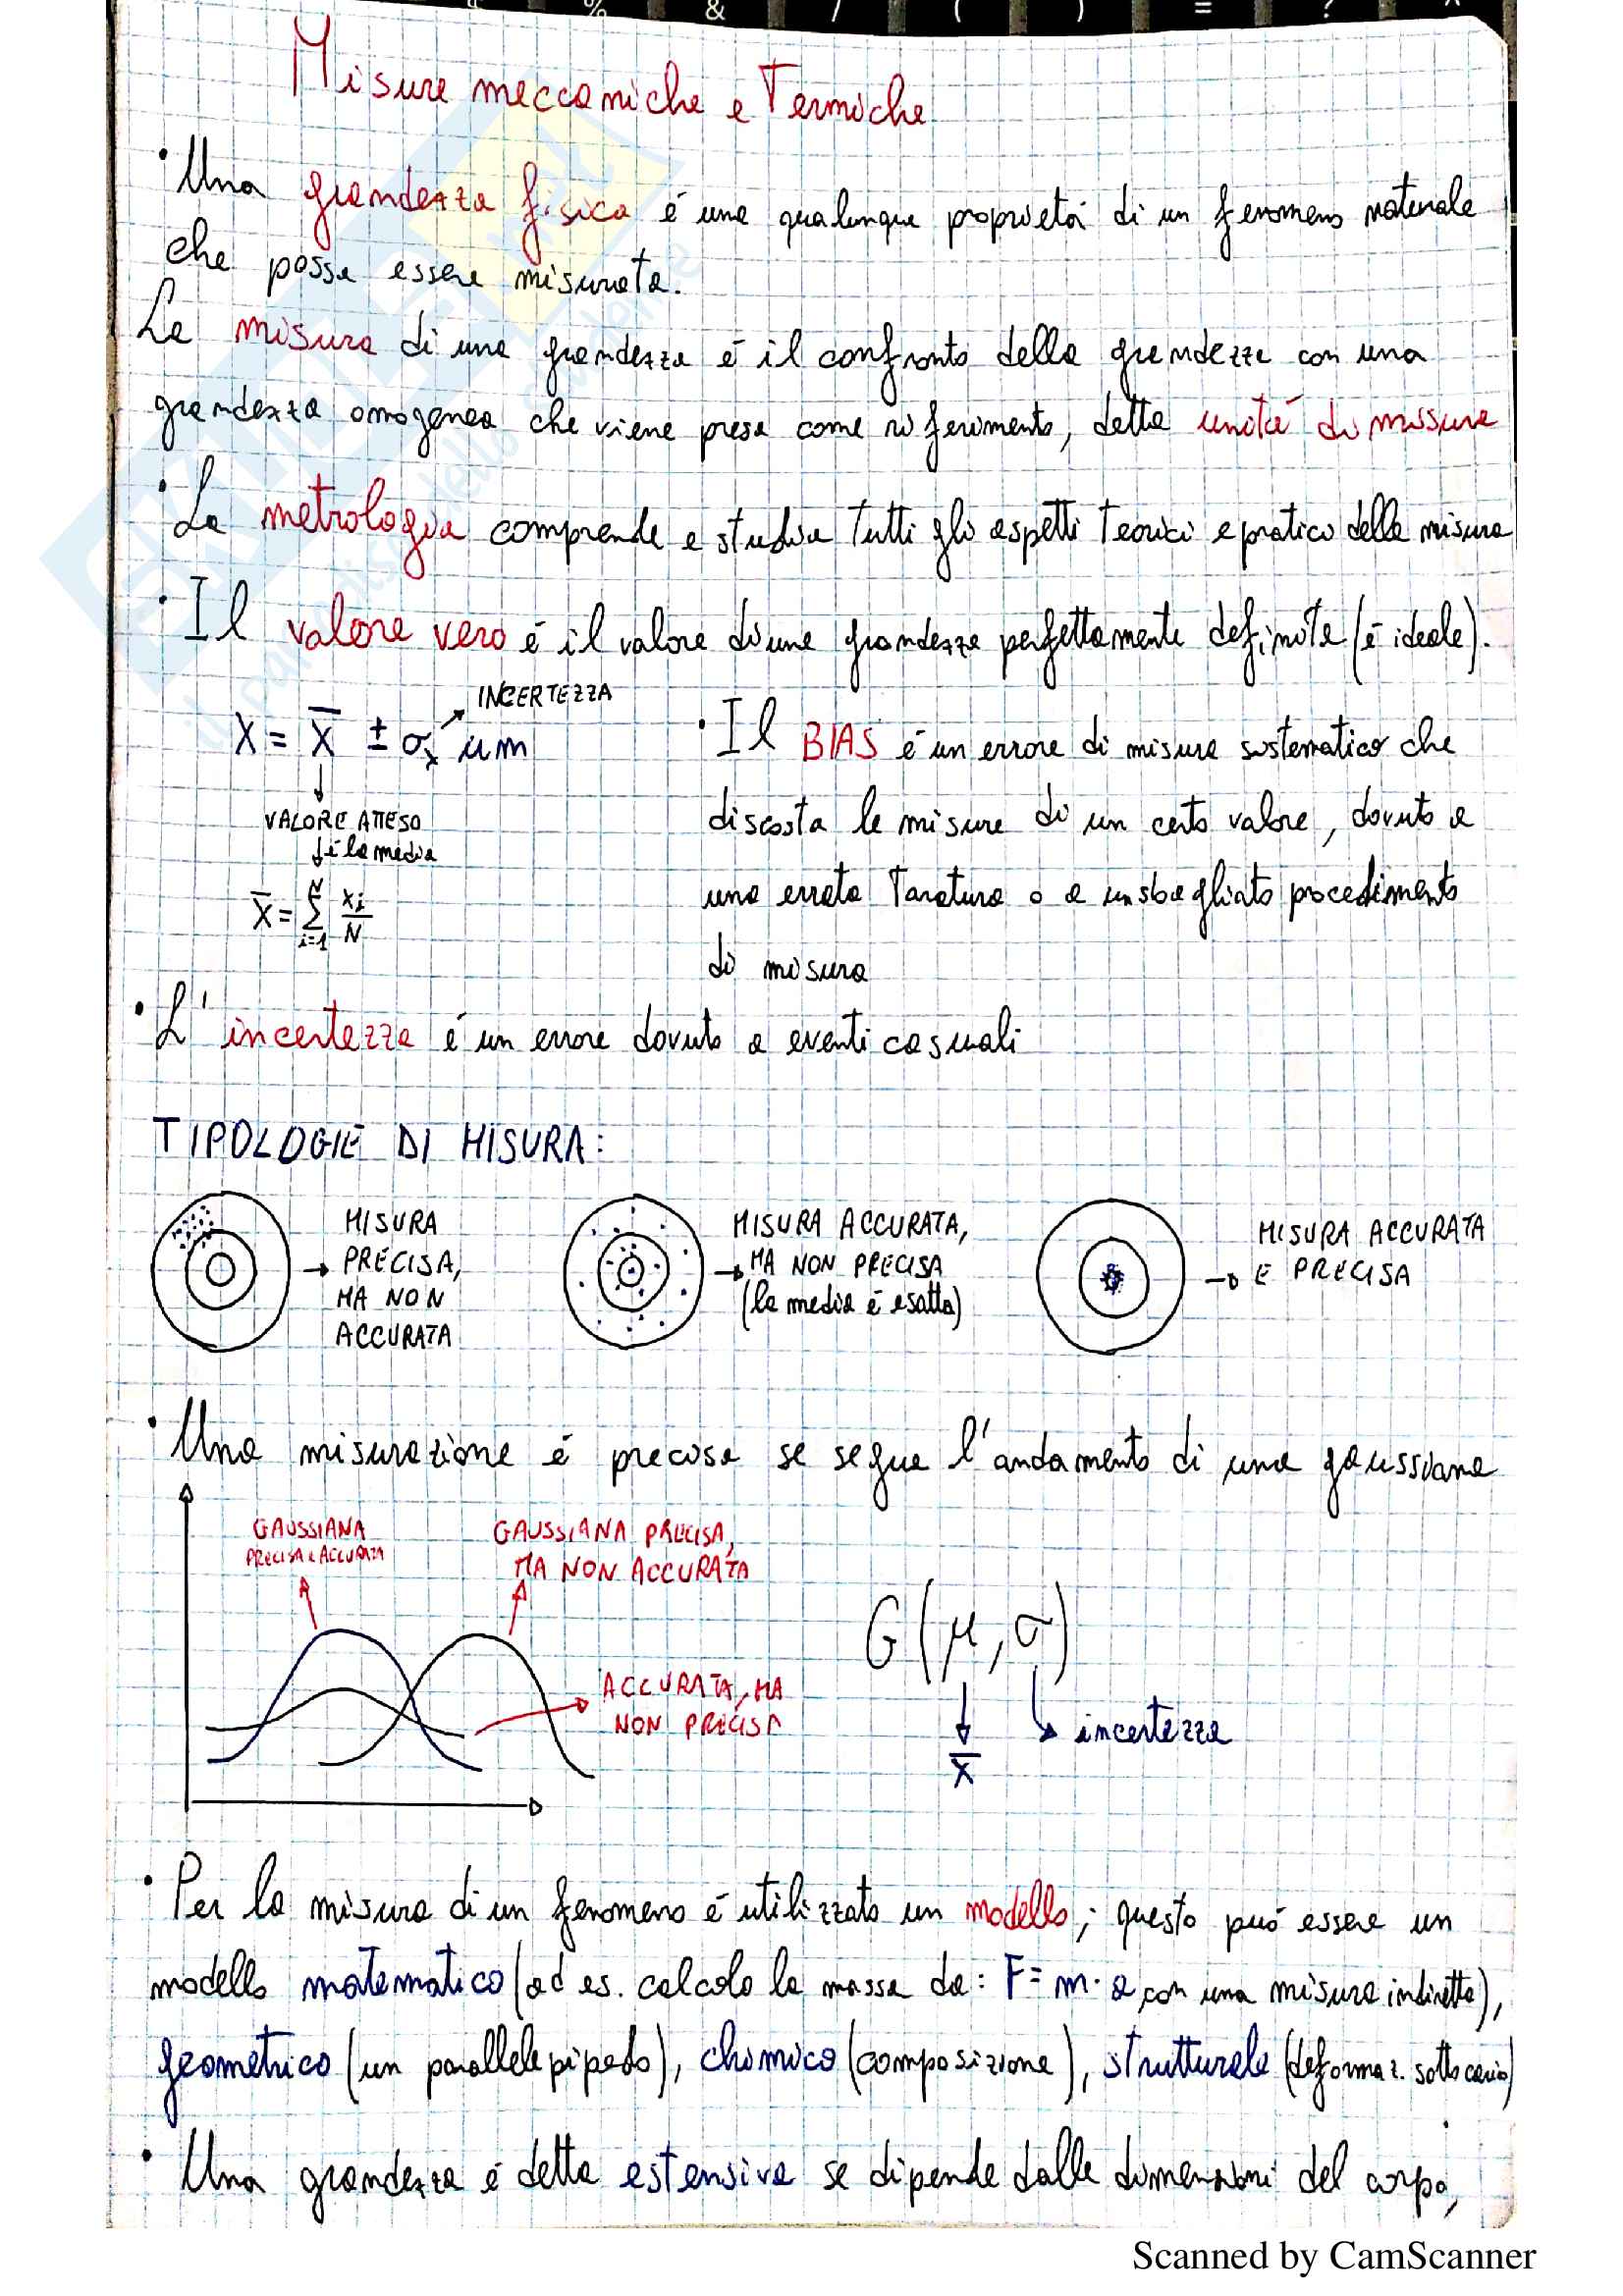 Misure meccaniche e Termiche
• Una grandezza fisica é una qualunque proprietá di un fenomeno naturale
che possa essere misurata.
La misura di una grandezza é il confronto della grandezza con una
grandezza omogenea che viene presa come riferimento, detta unitá di misura
• La metrologia comprende e studia tutti gli aspetti teorici e pratici della misura
• Il valore vero é il valore di una grandezza perfettamente definita (é ideale).
INCERTEZZA
X = X̅ ± σx um
VALORE ATTESO
é la media
X̅ = Σ xi/N
N
i=1
• Il BIAS é un errore di misura sistematico che
discosta le misure di un certo valore, dovuto a
una errata taratura o a un sbagliato procedimento
di misura
• L'incertezza é un errore dovuto a eventi casuali
TIPOLOGIE DI MISURA:
→ MISURA
PRECISA,
MA NON
ACCURATA
MISURA ACCURATA,
→ MA NON PRECISA
(la media é esatta)
MISURA ACCURATA
→ E PRECISA
• Una misurazione é precisa se segue l'andamento di una gaussiana
GAUSSIANA
PRECISA e ACCURATA
GAUSSIANA PRECISA,
MA NON ACCURATA
ACCURATA, MA
NON PRECISA
G(μ, σ)
incertezza
X̅
• Per la misura di un fenomeno é utilizzato un modello; questo puó essere un
modello matematico (ad es. calcolo la massa da: F = m · a con una misura indiretta),
geometrico (un parallelepipedo), chimico (composizione), strutturale (deformaz. sotto carico)
• Una grandezza é detta estensiva se dipende dalle dimensioni del corpo,
Scanned by CamScanner